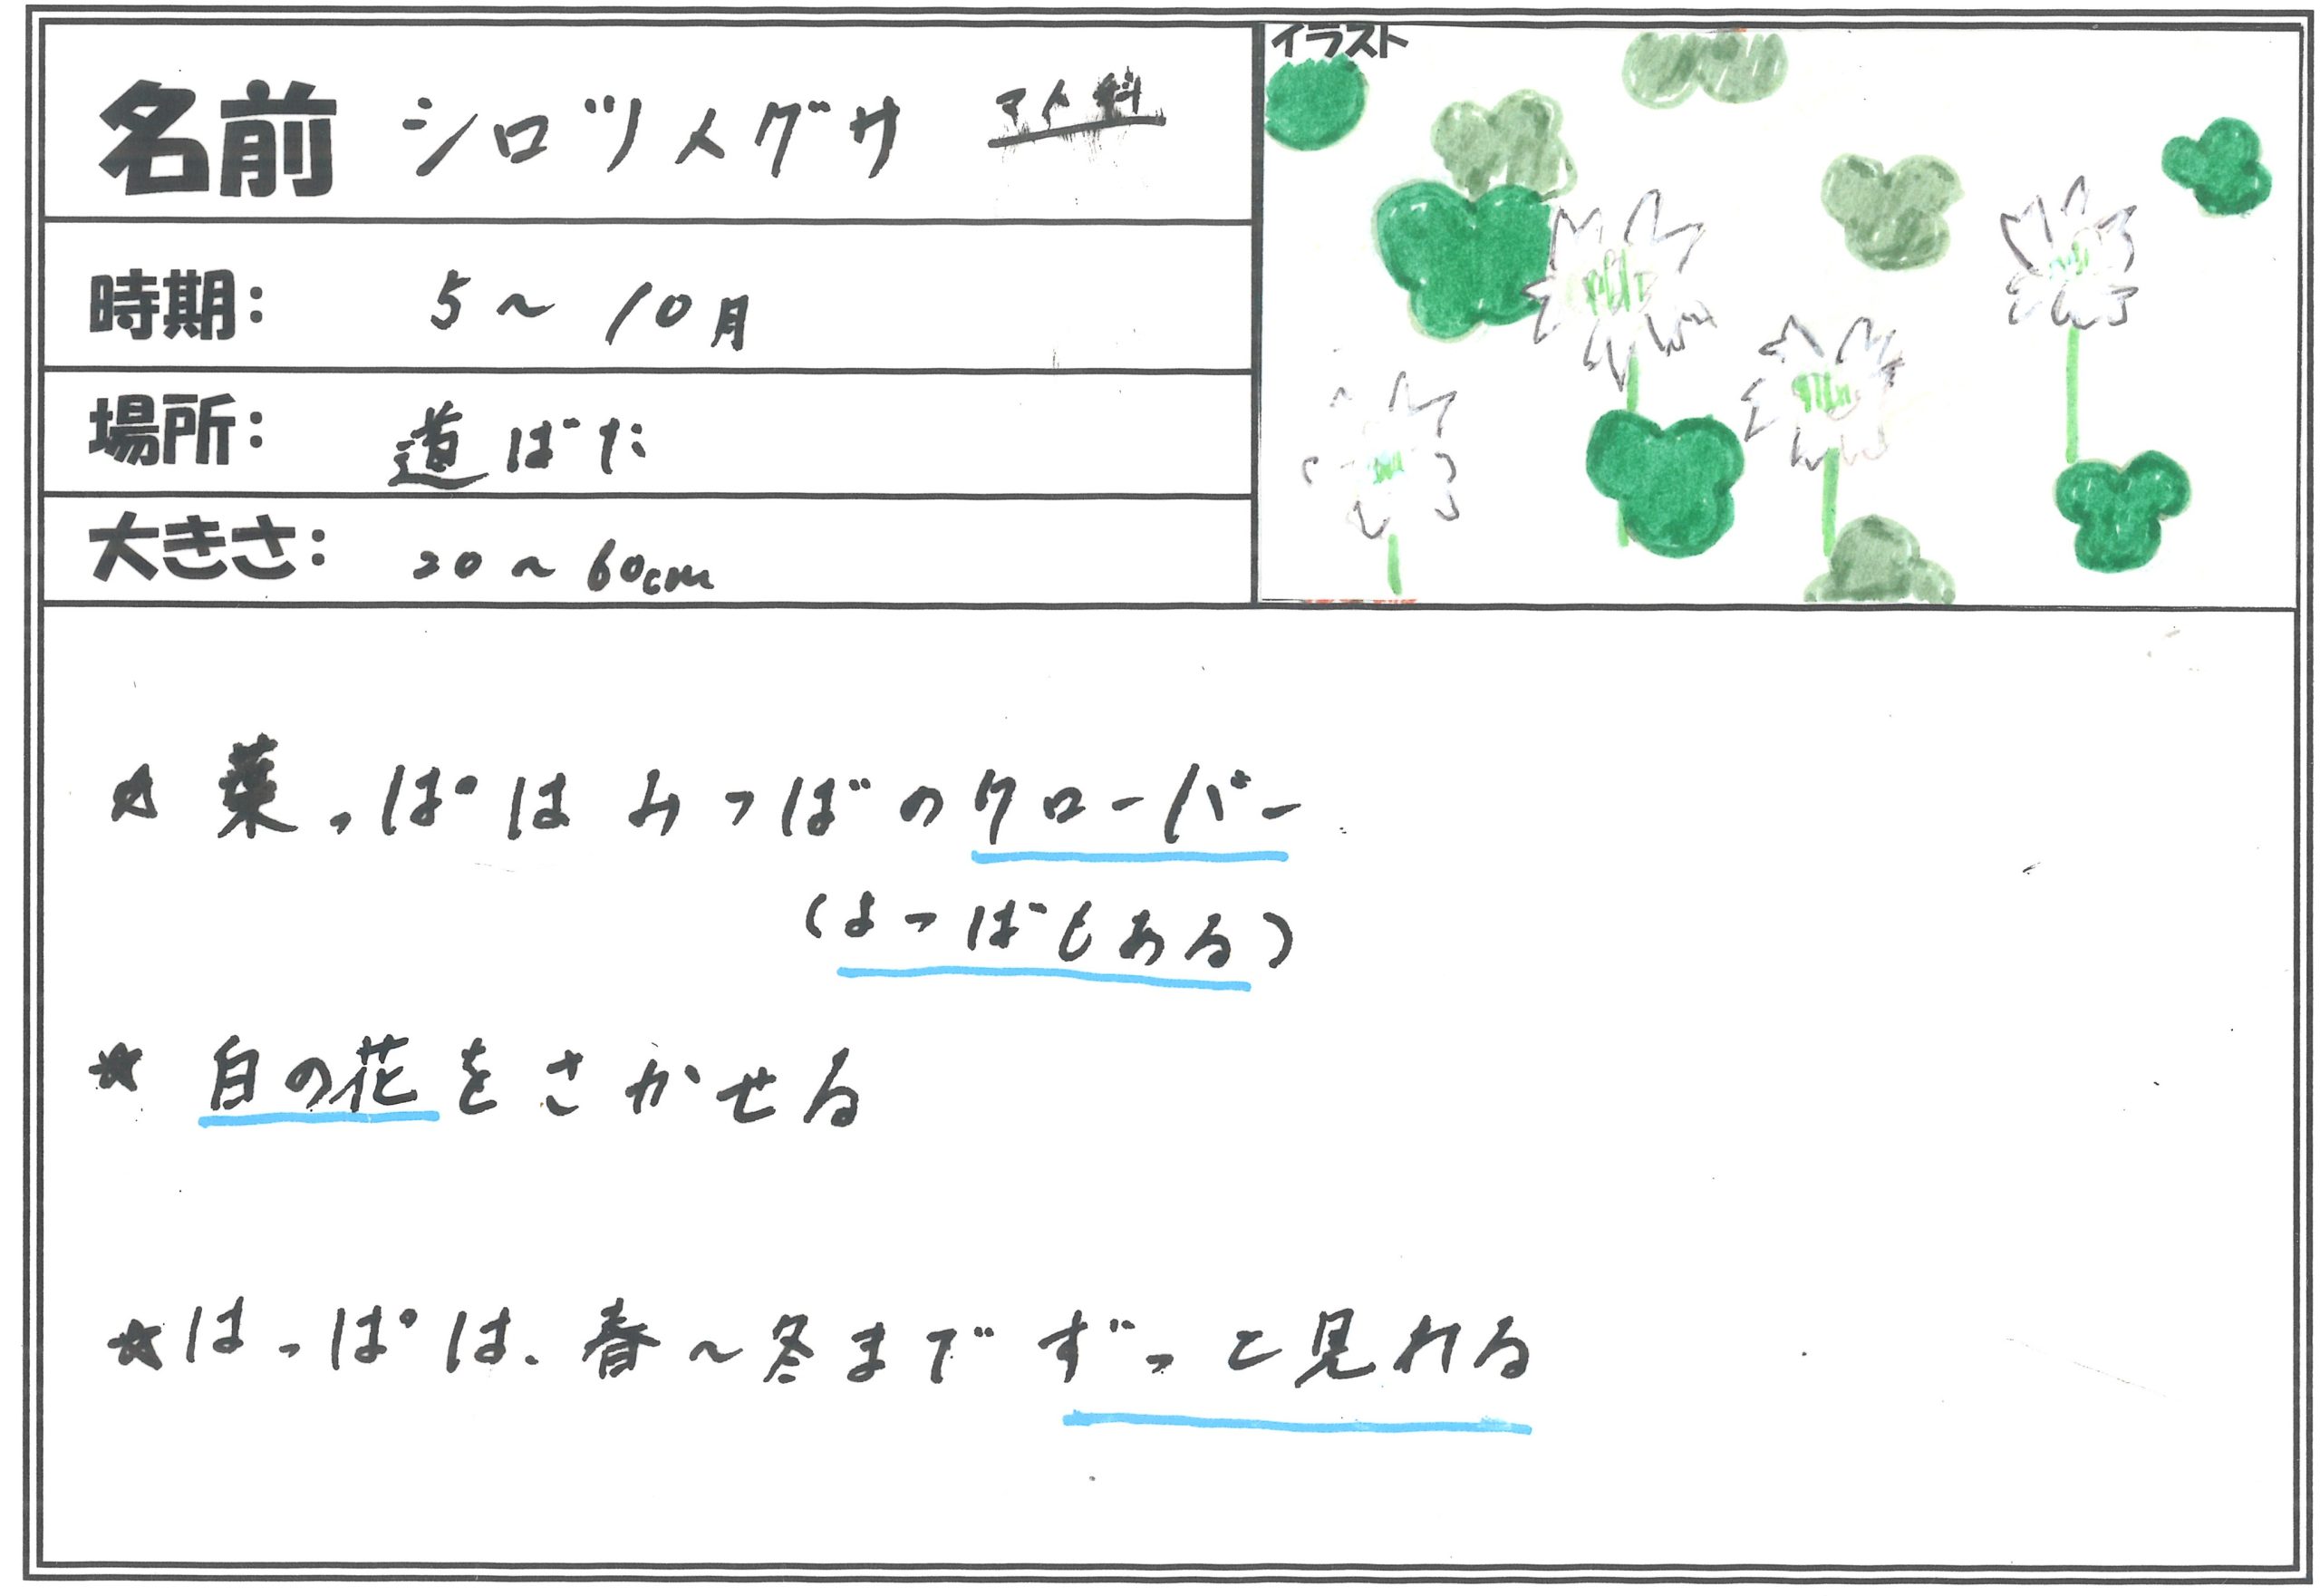 名前 シロツメグサ マメ科
イラスト
時期: 5~10月
場所: 道ばた
大きさ: 20~60cm
☆ 葉っぱはみつばのクローバー
(よつばもある)
☆ 白の花をさかせる
☆はっぱは、春~冬までずっと見れる